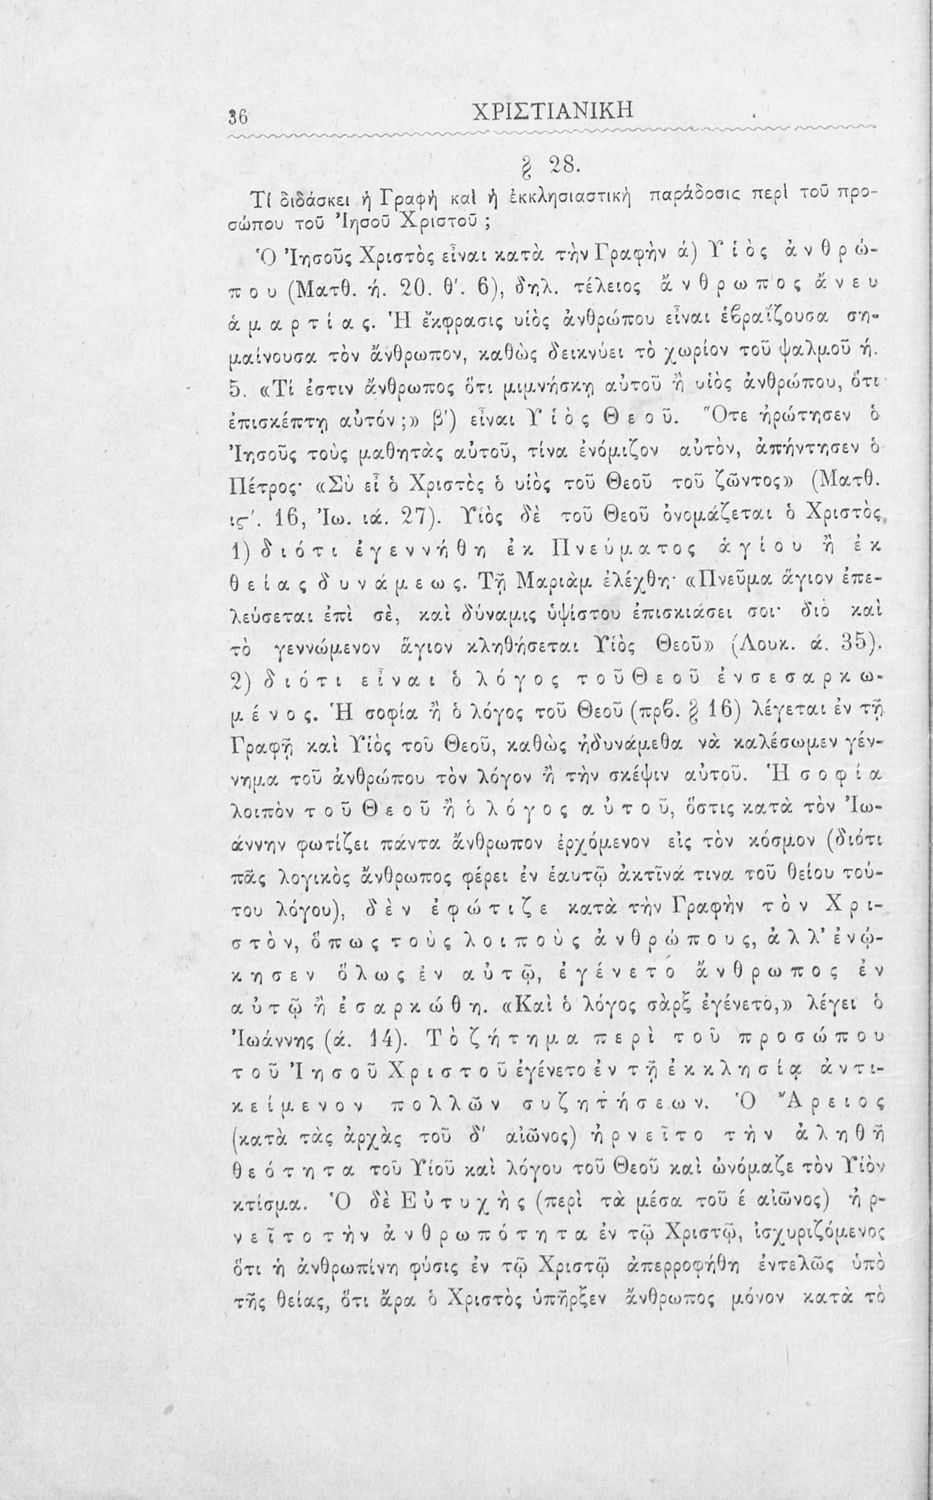 36 ΧΡΙΣΤΙΑΝΙΚΗ
§ 28.
Τί διδάσκει ἡ Γραφὴ καὶ ἡ ἐκκλησιαστικὴ παράδοσις περὶ τοῦ προ-
σώπου τοῦ Ἰησοῦ Χριστοῦ ;
Ὁ Ἰησοῦς Χριστὸς εἶναι κατὰ τὴν Γραφὴν ά) Υἱὸς ἀνθρώ-
που (Ματθ. ή. 20. θ'. 6), δηλ. τέλειος ἄνθρωπος ἄνευ
ἁμαρτίας. Ἡ ἔκφρασις υἱὸς ἀνθρώπου εἶναι ἑβραΐζουσα ση-
μαίνουσα τὸν ἄνθρωπον, καθὼς δεικνύει τὸ χωρίον τοῦ ψαλμοῦ ή.
5. «Τί ἐστιν ἄνθρωπος ὅτι μιμνήσκῃ αὐτοῦ ἢ υἱὸς ἀνθρώπου, ὅτι
ἐπισκέπτῃ αὐτόν;» β') εἶναι Υἱὸς Θεοῦ. Ὅτε ἠρώτησεν ὁ
Ἰησοῦς τοὺς μαθητὰς αὐτοῦ, τίνα ἐνόμιζον αὐτὸν, ἀπήντησεν ὁ
Πέτρος· «Σὺ εἶ ὁ Χριστὸς ὁ υἱὸς τοῦ Θεοῦ τοῦ ζῶντος» (Ματθ.
ις'. 16, Ἰω. ιά. 27). Υἱὸς δὲ τοῦ Θεοῦ ὀνομάζεται ὁ Χριστὸς,
1) διότι ἐγεννήθη ἐκ Πνεύματος ἁγίου ἢ ἐκ
θείας δυνάμεως. Τῇ Μαριὰμ ἐλέχθη· «Πνεῦμα ἅγιον ἐπε-
λεύσεται ἐπὶ σὲ, καὶ δύναμις ὑψίστου ἐπισκιάσει σοι· διὸ καὶ
τὸ γεννώμενον ἅγιον κληθήσεται Υἱὸς Θεοῦ» (Λουκ. ά. 35).
2) διότι εἶναι ὁ λόγος τοῦ Θεοῦ ἐνσεσαρκω-
μένος. Ἡ σοφία ἢ ὁ λόγος τοῦ Θεοῦ (πρβ. § 16) λέγεται ἐν τῇ
Γραφῇ καὶ Υἱὸς τοῦ Θεοῦ, καθὼς ἠδυνάμεθα νὰ καλέσωμεν γέν-
νημα τοῦ ἀνθρώπου τὸν λόγον ἢ τὴν σκέψιν αὐτοῦ. Ἡ σοφία
λοιπὸν τοῦ Θεοῦ ἢ ὁ λόγος αὐτοῦ, ὅστις κατὰ τὸν Ἰω-
άννην φωτίζει πάντα ἄνθρωπον ἐρχόμενον εἰς τὸν κόσμον (διότι
πᾶς λογικὸς ἄνθρωπος φέρει ἐν ἑαυτῷ ἀκτῖνά τινα τοῦ θείου τού-
του λόγου), δὲν ἐφώτιζε κατὰ τὴν Γραφὴν τὸν Χρι-
στὸν, ὅπως τοὺς λοιποὺς ἀνθρώπους, ἀλλ' ἐνῴ-
κησεν ὅλως ἐν αὐτῷ, ἐγένετο ἄνθρωπος ἐν
αὐτῷ ἢ ἐσαρκώθη. «Καὶ ὁ λόγος σὰρξ ἐγένετο,» λέγει ὁ
Ἰωάννης (ά. 14). Τὸ ζήτημα περὶ τοῦ προσώπου
τοῦ Ἰησοῦ Χριστοῦ ἐγένετο ἐν τῇ ἐκκλησίᾳ ἀντι-
κείμενον πολλῶν συζητήσεων. Ὁ Ἄρειος
(κατὰ τὰς ἀρχὰς τοῦ δ' αἰῶνος) ἠρνεῖτο τὴν ἀληθῆ
θεότητα τοῦ Υἱοῦ καὶ λόγου τοῦ Θεοῦ καὶ ὠνόμαζε τὸν Υἱὸν
κτίσμα. Ὁ δὲ Εὐτυχὴς (περὶ τὰ μέσα τοῦ έ αἰῶνος) ἠρ-
νεῖτο τὴν ἀνθρωπότητα ἐν τῷ Χριστῷ, ἰσχυριζόμενος
ὅτι ἡ ἀνθρωπίνη φύσις ἐν τῷ Χριστῷ ἀπερροφήθη ἐντελῶς ὑπὸ
τῆς θείας, ὅτι ἄρα ὁ Χριστὸς ὑπῆρξεν ἄνθρωπος μόνον κατὰ τὸ